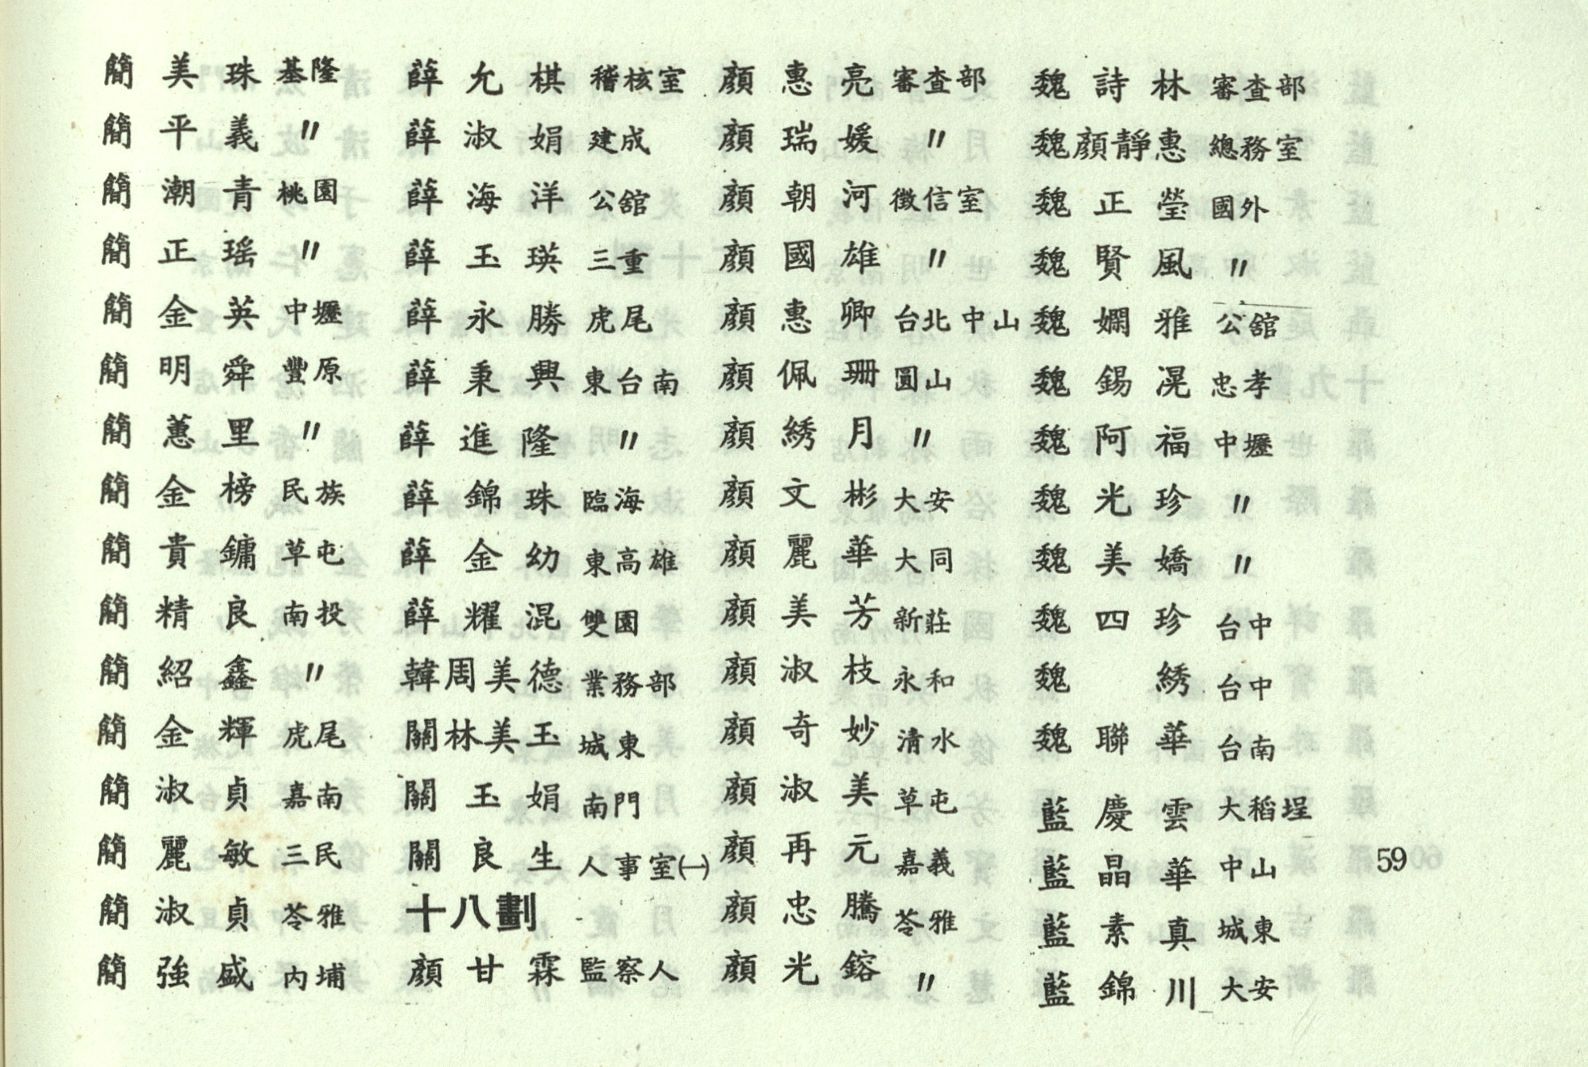 簡美珠 基隆
簡平義 〃
簡潮青 桃園
簡正瑤 〃
簡金英 中壢
簡明舜 豐原
簡蕙里 〃
簡金榜 民族
簡貴鏞 草屯
簡精良 南投
簡紹鑫 〃
簡金輝 虎尾
簡淑貞 嘉南
簡麗敏 三民
簡淑貞 苓雅
簡強盛 內埔
薛允棋 稽核室
薛淑娟 建成
薛海洋 公舘
薛玉瑛 三重
薛永勝 虎尾
薛秉興 東台南
薛進隆 〃
薛錦珠 臨海
薛金幼 東高雄
薛耀混 雙園
韓周美德 業務部
關林美玉 城東
關玉娟 南門
關良生 人事室㈠
十八劃
顏甘霖 監察人
顏惠亮 審查部
顏瑞媛 〃
顏朝河 徵信室
顏國雄 〃
顏惠卿 台北中山
顏佩珊 圓山
顏綉月 〃
顏文彬 大安
顏麗華 大同
顏美芳 新莊
顏淑枝 永和
顏奇妙 清水
顏淑美 草屯
顏再元 嘉義
顏忠騰 苓雅
顏光鎔 〃
魏詩林 審查部
魏顏靜惠 總務室
魏正瑩 國外
魏賢風 〃
魏嫻雅 公舘
魏錫滉 忠孝
魏阿福 中壢
魏光珍 〃
魏美嬌 〃
魏四珍 台中
魏綉 台中
魏聯華 台南
藍慶雲 大稻埕
藍晶華 中山
藍素真 城東
藍錦川 大安
59